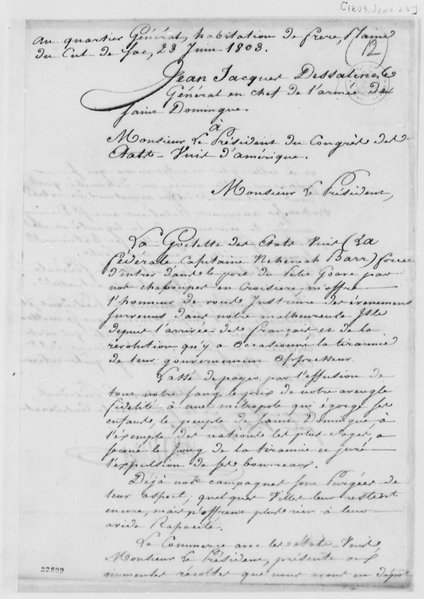 [1803, June 23]
12
Au quartier Général, habitation de frere, Plaine
du Cul de Sac, 23 Juin 1803.
Jean Jacques Dessalines
Général en chef de l'armée de
Saint Domingue.
à
Monsieur Le Président du Congrès des
Etats-Unis d'amérique.
Monsieur Le Président,
La Goëlette des Etats Unis (La
fédérale Capitaine Neheniah Barr) forcée
d'entrer dans le port du Petit Goave par
nos chaloupes en croisiere, m'offre
l'honneur de vous Instruire des évenemens
survenus dans notre malheureuse Isle
depuis l'arrivée des français et de la
révolution qu'y a occasionné la tirannie
de leur gouvernement Oppresseur.
Lassé de payer par l'effusion de
tout notre sang le prix de notre aveugle
fidélité à une métropole qui égorge ses
enfants, le peuple de Saint Domingue, à
l'exemple des nations les plus sages, a
secoué le Joug de la tirannie et juré
l'expulsion de ses bourreaux.
Déjà nos campagnes sont Purgées de
leur aspect; quelques Villes leur restent
encore, mais n'offrent plus rien à leur
avide Rapacité.
Le Commerce avec les Etats Unis,
Monsieur Le Président, présente aux
immenses récoltes que nous avons en dépôt
22899